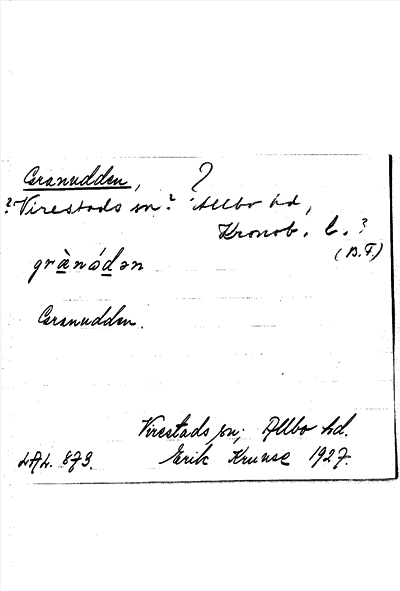 Granudden, ?
? Virestads sn ? Allbo hd,
Kronob. l. ?
(B.F.)
grànádən
Granudden.
Virestads sn; Allbo hd.
LAL. 879. Erik Kruuse 1927.